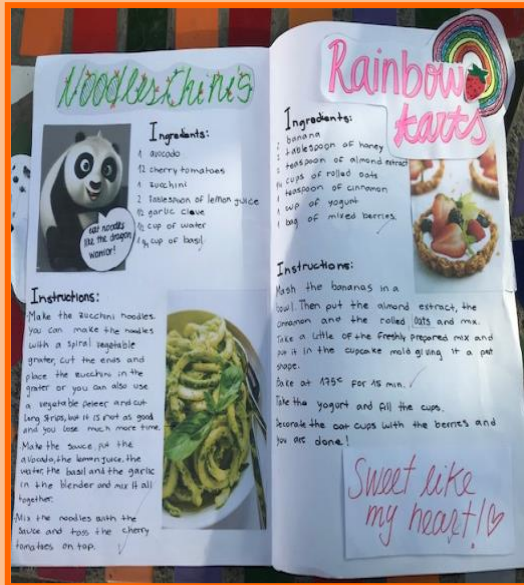 Noodles thinis
Ingredients:
1 avocado
12 cherry tomatoes
1 zucchini
2 tablespoon of lemon juice
1/2 garlic clove
cup of water
1/4 cup of basil
eat noodles
like the dragon
warrior!
Instructions:
Make the zucchini noodles.
You can make the noodles
with a spiral vegetable
grater, cut the ends and
place the zucchini in the
grater or you can also use
a vegetable peleer and cut
long strips, but it is not as good
and you lose much more time.
Make the sauce, put the
avocado, the lemon juice, the
water, the basil and the garlic
in the blender and mix it all
together.
Mix the noodles with the
sauce and toss the cherry
tomatoes on top.
Rainbow
tarts
Ingredients:
2 banana
tablespoon of honey
teaspoon of almond extract
cups of rolled oats
teaspoon of cinnamon
1 cup of yogurt
1 bag of mixed berries.
Instructions:
Mash the bananas in a
bowl. Then put the almond extract, the
cinnamon and the rolled oats and mix.
Take a little of the freshly prepared mix and
put it in the cupcake mold giving it a
shape.
Bake at 175c for 15 min.
Take the yogurt and fill the cups.
Decorate the oat cups with the berries and
you are done!
Sweet like
my heart!